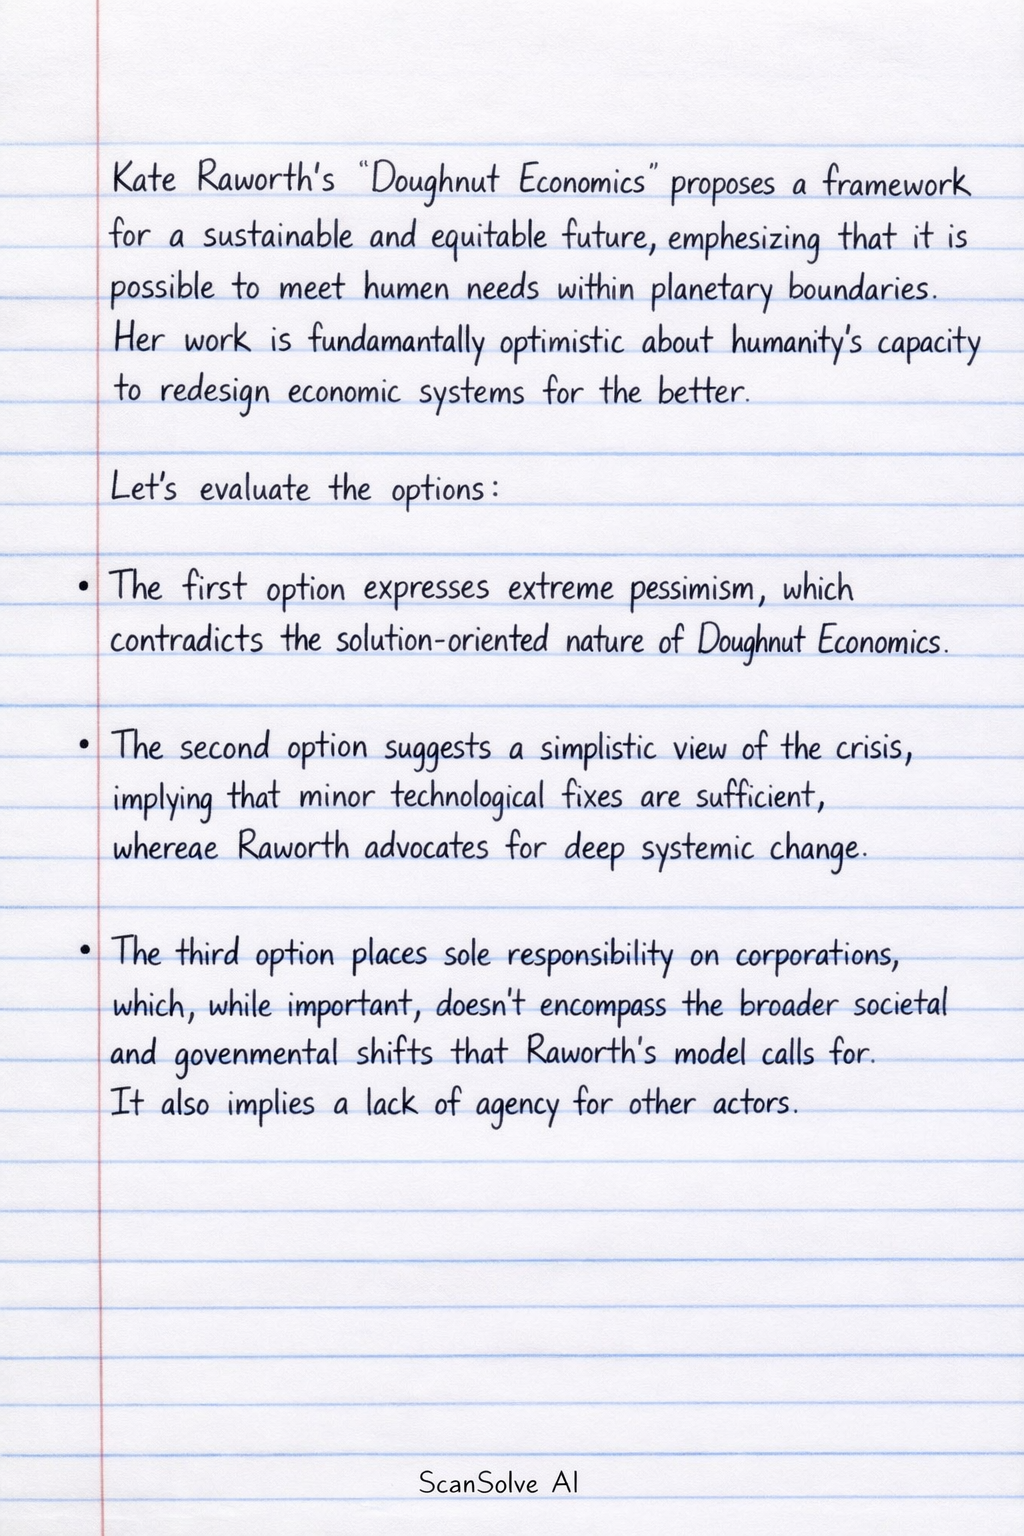 Kate Raworth's "Doughnut Economics" proposes a framework
for a sustainable and equitable future, emphesizing that it is
possible to meet humen needs within planetary boundaries.
Her work is fundamantally optimistic about humanity's capacity
to redesign economic systems for the better.
Let's evaluate the options:
• The first option expresses extreme pessimism, which
contradicts the solution-oriented nature of Doughnut Economics.
• The second option suggests a simplistic view of the crisis,
implying that minor technological fixes are sufficient,
whereae Raworth advocates for deep systemic change.
• The third option places sole responsibility on corporations,
which, while important, doesn't encompass the broader societal
and govenmental shifts that Raworth's model calls for.
It also implies a lack of agency for other actors.
ScanSolve AI